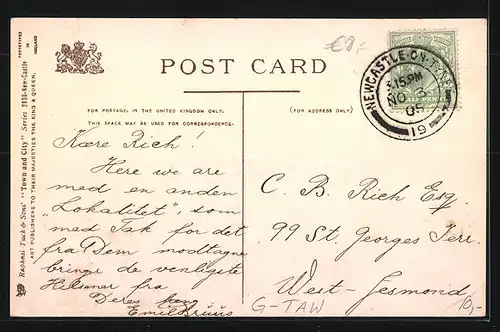 €8,-
POST CARD
FOR POSTAGE IN THE UNITED KINGDOM ONLY,
THIS SPACE MAY BE USED FOR CORRESPONDENCE.
(FOR ADDRESS ONLY)
Raphael Tuck & Sons' "Town and City" Series 2830-New-Castle
ART PUBLISHERS TO THEIR MAJESTIES THE KING & QUEEN.
PHOTOTYPED
IN
HOLLAND
NEWCASTLE-ON-TYNE
3.15 PM
NO 3
05
19
HALFPENNY
Kære Rich!
Here we are
med en anden
"Lokalitet", som
med Tak for det
fra Dem modtagne
bringe de venligste
Hilsener fra
Deres
Emil
C. B. Rich Esq.
99 St. Georges Terr.
West-Jesmond
G-TAW
10,-